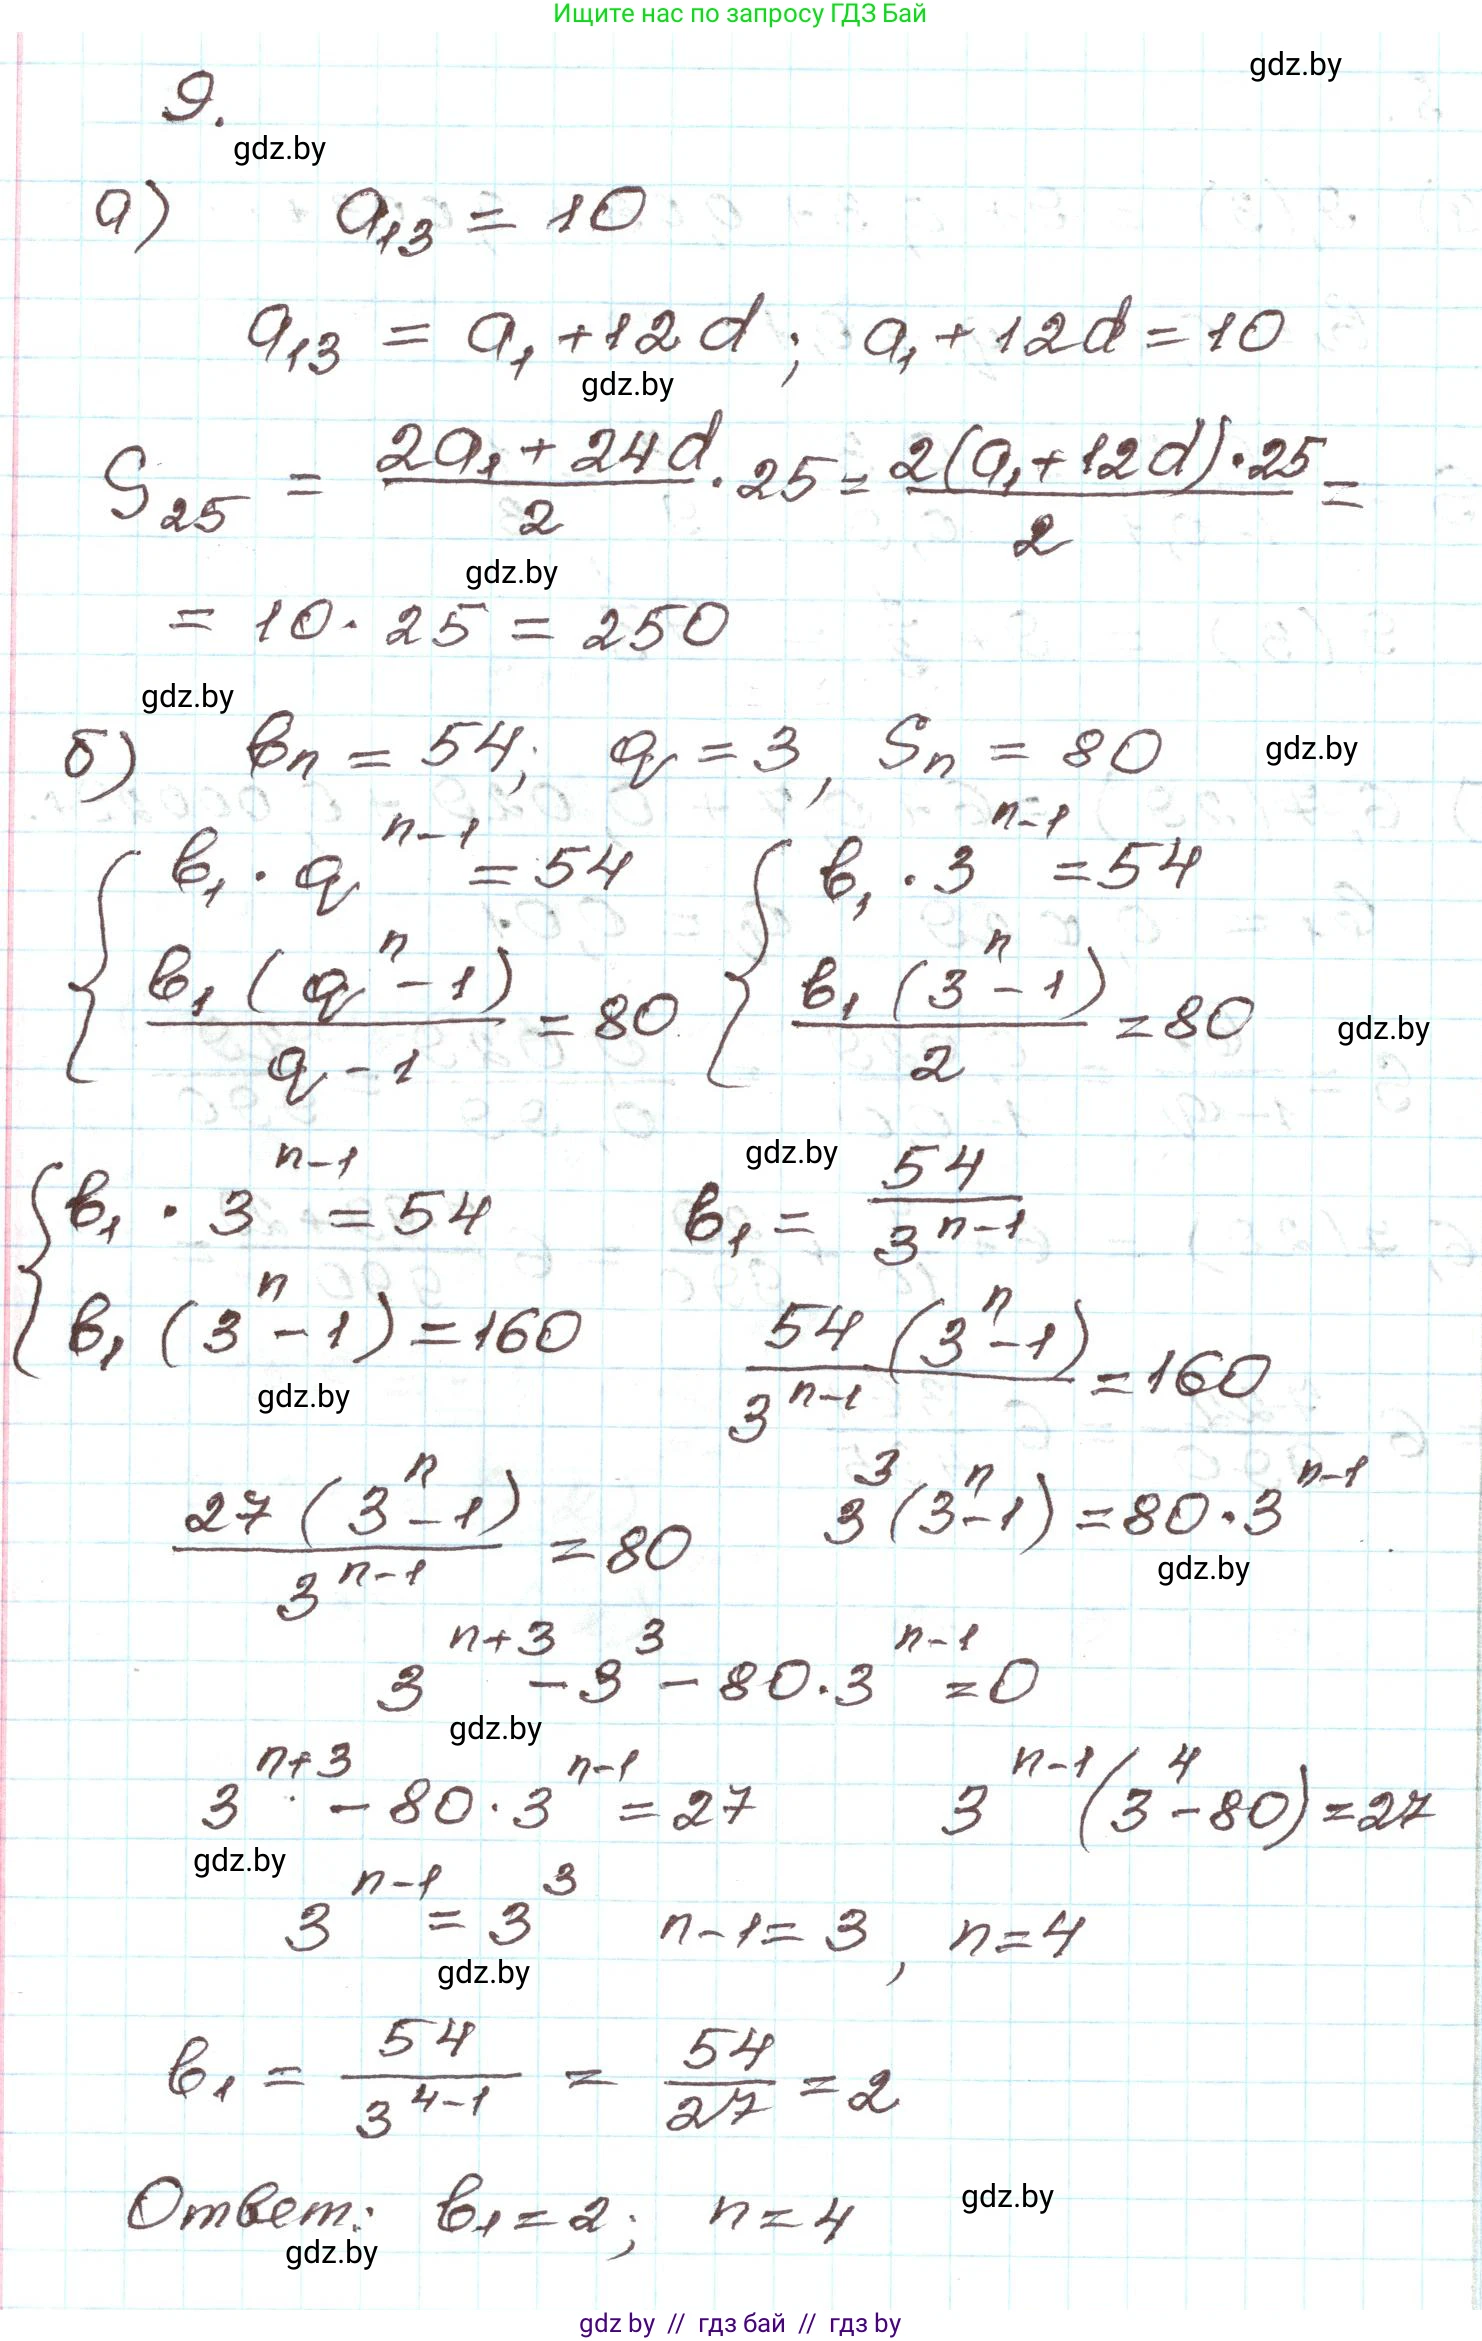 Ищите нас по запросу ГДЗ Бай
gdz.by
9.
gdz.by
а) a₁₃ = 10
a₁₃ = a₁ + 12d ; a₁ + 12d = 10
gdz.by
S₂₅ = (2a₁ + 24d)/2 · 25 = 2(a₁ + 12d) · 25/2 =
gdz.by
= 10 · 25 = 250
gdz.by
б) bₙ = 54; q = 3, Sₙ = 80
gdz.by
{ b₁ · qⁿ⁻¹ = 54 { b₁ · 3ⁿ⁻¹ = 54
b₁(qⁿ - 1)/(q - 1) = 80 b₁(3ⁿ - 1)/2 = 80
gdz.by
gdz.by
{ b₁ · 3ⁿ⁻¹ = 54 b₁ = 54/3ⁿ⁻¹
b₁(3ⁿ - 1) = 160 54(3ⁿ - 1)/3ⁿ⁻¹ = 160
gdz.by
27(3ⁿ - 1)/3ⁿ⁻¹ = 80 3³(3ⁿ - 1) = 80 · 3ⁿ⁻¹
gdz.by
3ⁿ⁺³ - 3³ - 80 · 3ⁿ⁻¹ = 0
gdz.by
3ⁿ⁺³ - 80 · 3ⁿ⁻¹ = 27 3ⁿ⁻¹(3⁴ - 80) = 27
gdz.by
3ⁿ⁻¹ = 3³ n - 1 = 3, n = 4
gdz.by
b₁ = 54/3⁴⁻¹ = 54/27 = 2
Ответ: b₁ = 2; n = 4
gdz.by
gdz.by
gdz by // гдз бай // гдз by